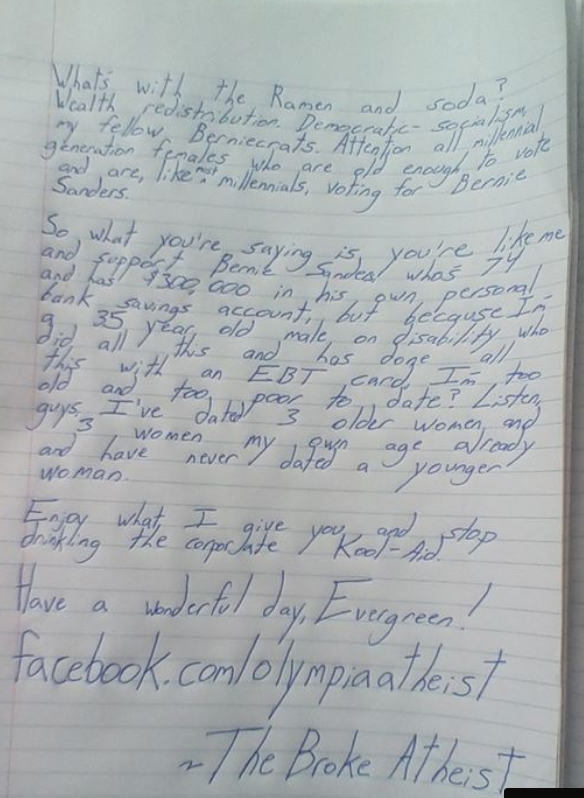 What's with the Ramen and soda?
Wealth redistribution. Democratic-socialism,
my fellow Berniecrats. Attention all millennial
generation females who are old enough to vote
and are, like most millennials, voting for Bernie
Sanders.
So what you're saying is you're like me
and support Bernie Sanders, whos 74
and has $300,000 in his own personal
bank savings account, but because I'm
a 35 year old male on disability who
did all this and has done all
this with an EBT card, I'm too
old and too poor to date? Listen,
guys, I've dated 3 older women, and
3 women my own age already
and have never dated a younger
woman.
Enjoy what I give you and stop
drinkling the corporate Kool-Aid.
Have a wonderful day, Evergreen!
facebook.com/olympiaatheist
~The Broke Atheist